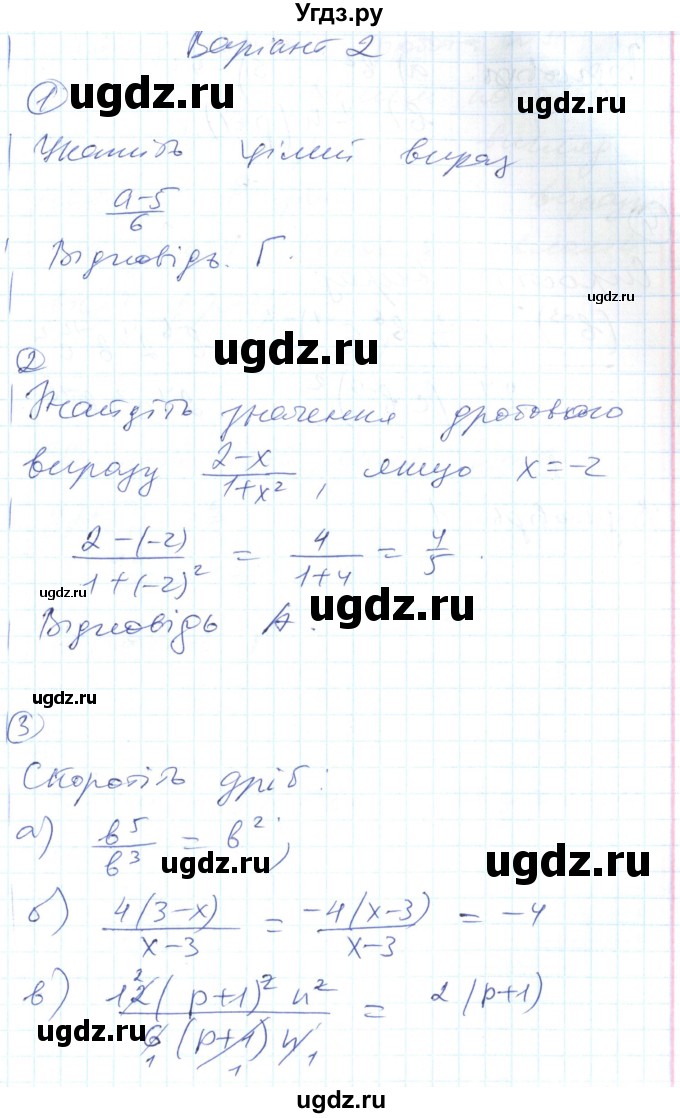 Угдз.ру
Варіант 2
1 ugdz.ru
ugdz.ru
Укажіть цілий вираз
(a-5)/6
Відповідь. Г.
ugdz.ru
ugdz.ru
2
Знайдіть значення дробового
виразу (2-x)/(1+x²), якщо x=-2
(2-(-2))/(1+(-2)²) = 4/(1+4) = 4/5.
ugdz.ru
ugdz.ru
Відповідь А.
ugdz.ru
3
Скоротіть дріб:
а) b⁵/b³ = b²;
ugdz.ru
ugdz.ru
б) 4(3-x)/(x-3) = -4(x-3)/(x-3) = -4
ugdz.ru
в) 12(p+1)²n²/6(p+1)n = 2(p+1)
ugdz.ru
ugdz.ru
Угдз.ру